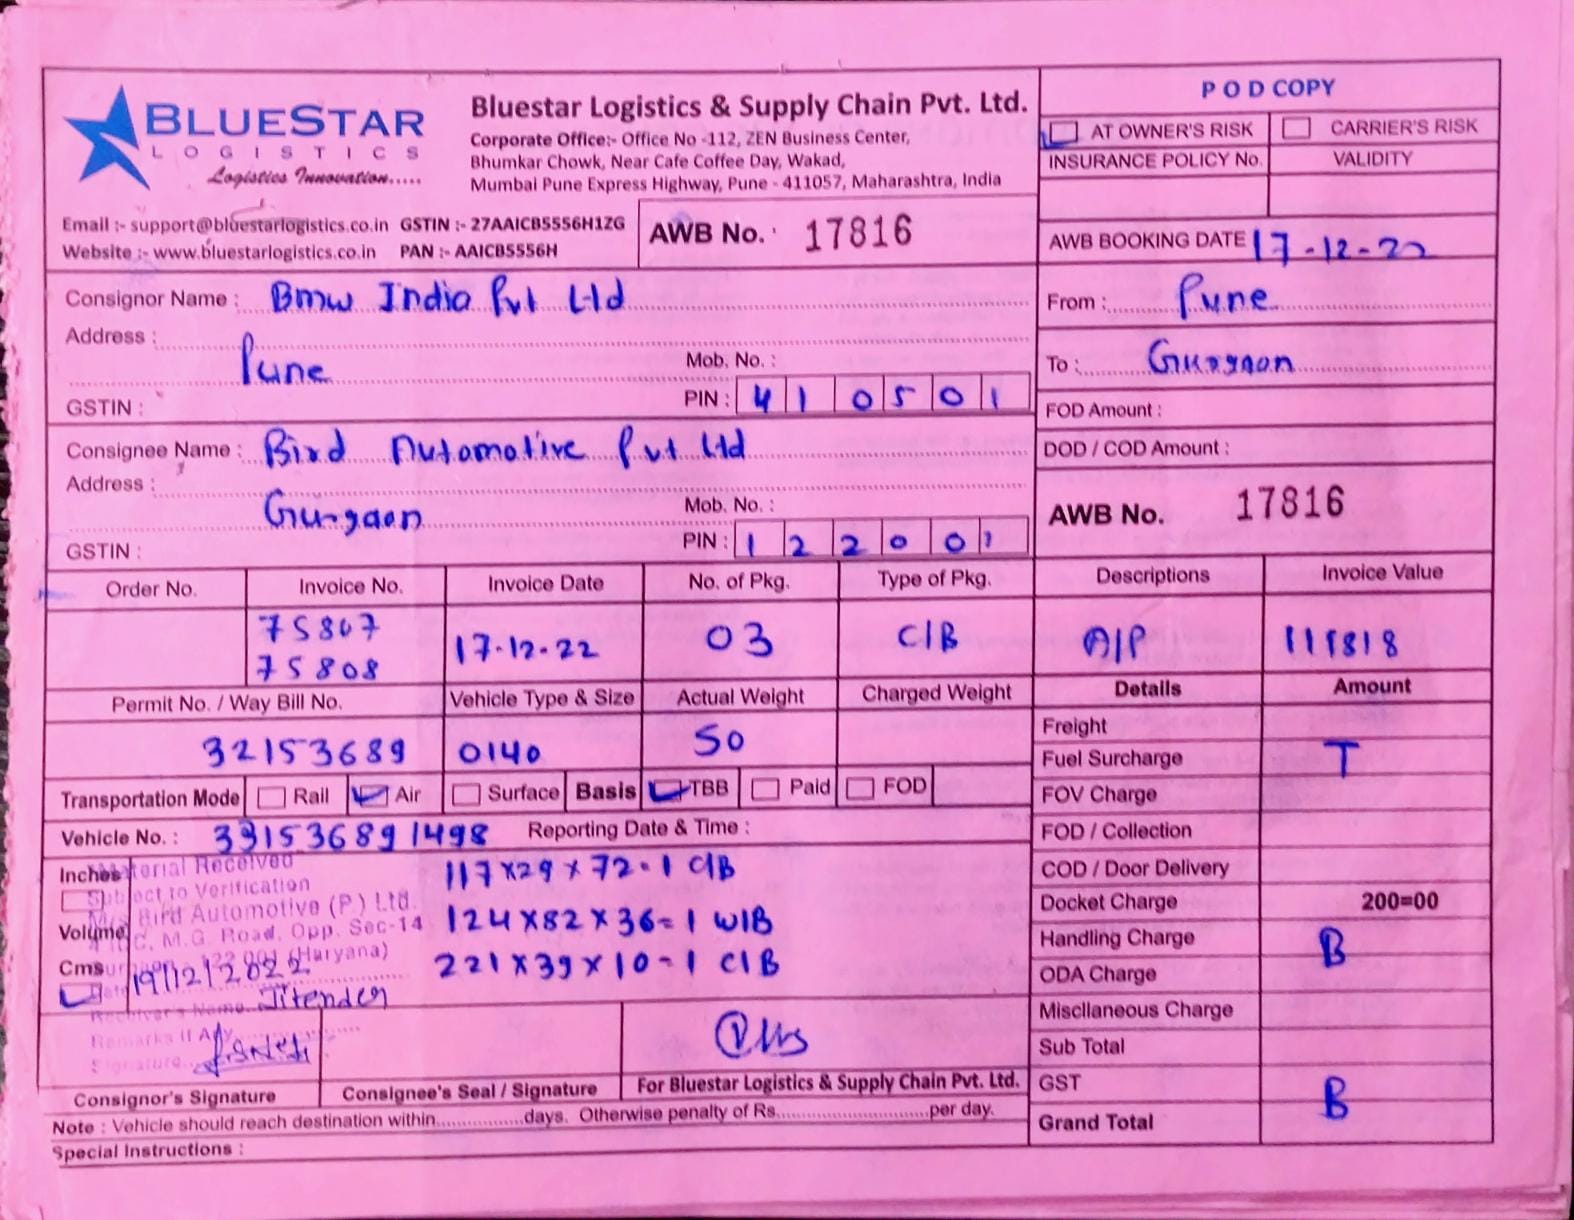 BLUESTAR
LOGISTICS
Logistics Innovation.....
Bluestar Logistics & Supply Chain Pvt. Ltd.
Corporate Office:- Office No -112, ZEN Business Center,
Bhumkar Chowk, Near Cafe Coffee Day, Wakad,
Mumbai Pune Express Highway, Pune - 411057, Maharashtra, India
POD COPY
AT OWNER'S RISK CARRIER'S RISK
INSURANCE POLICY No. VALIDITY
Email :- support@bluestarlogistics.co.in GSTIN :- 27AAICB5556H1ZG
Website :- www.bluestarlogistics.co.in PAN :- AAICB5556H
AWB No. 17816
AWB BOOKING DATE 17-12-22
Consignor Name : Bmw India Pvt Ltd
From : Pune
Address :
Pune
Mob. No. :
To : Gurgaon
GSTIN :
PIN : 410501
FOD Amount :
Consignee Name : Bird Automotive Pvt Ltd
DOD / COD Amount :
Address :
Gurgaon
Mob. No. :
AWB No. 17816
GSTIN :
PIN : 122001
Order No. Invoice No. Invoice Date No. of Pkg. Type of Pkg. Descriptions Invoice Value
75807
75808
17.12.22 03 C/B A/P 111818
Permit No. / Way Bill No. Vehicle Type & Size Actual Weight Charged Weight Details Amount
32153689 0140 50
Freight
Fuel Surcharge T
Transportation Mode Rail Air Surface Basis TBB Paid FOD
FOV Charge
Vehicle No. : 331536891498 Reporting Date & Time :
FOD / Collection
Inches
Material Received
117x29x72=1 C/B
COD / Door Delivery
Subject to Verification
Docket Charge 200=00
M/s Bird Automotive (P) Ltd.
Volume
124x82x36=1 W/B
M.G. Road, Opp. Sec-14
Handling Charge B
(Haryana)
Cms
221x39x10=1 C/B
ODA Charge
Date 19/12/2022
Receiver's Name Jitender
Miscllaneous Charge
Remarks If Any
Signature
Sub Total
Consignor's Signature Consignee's Seal / Signature For Bluestar Logistics & Supply Chain Pvt. Ltd.
GST B
Note : Vehicle should reach destination within..................days. Otherwise penalty of Rs................................per day.
Grand Total
Special Instructions :